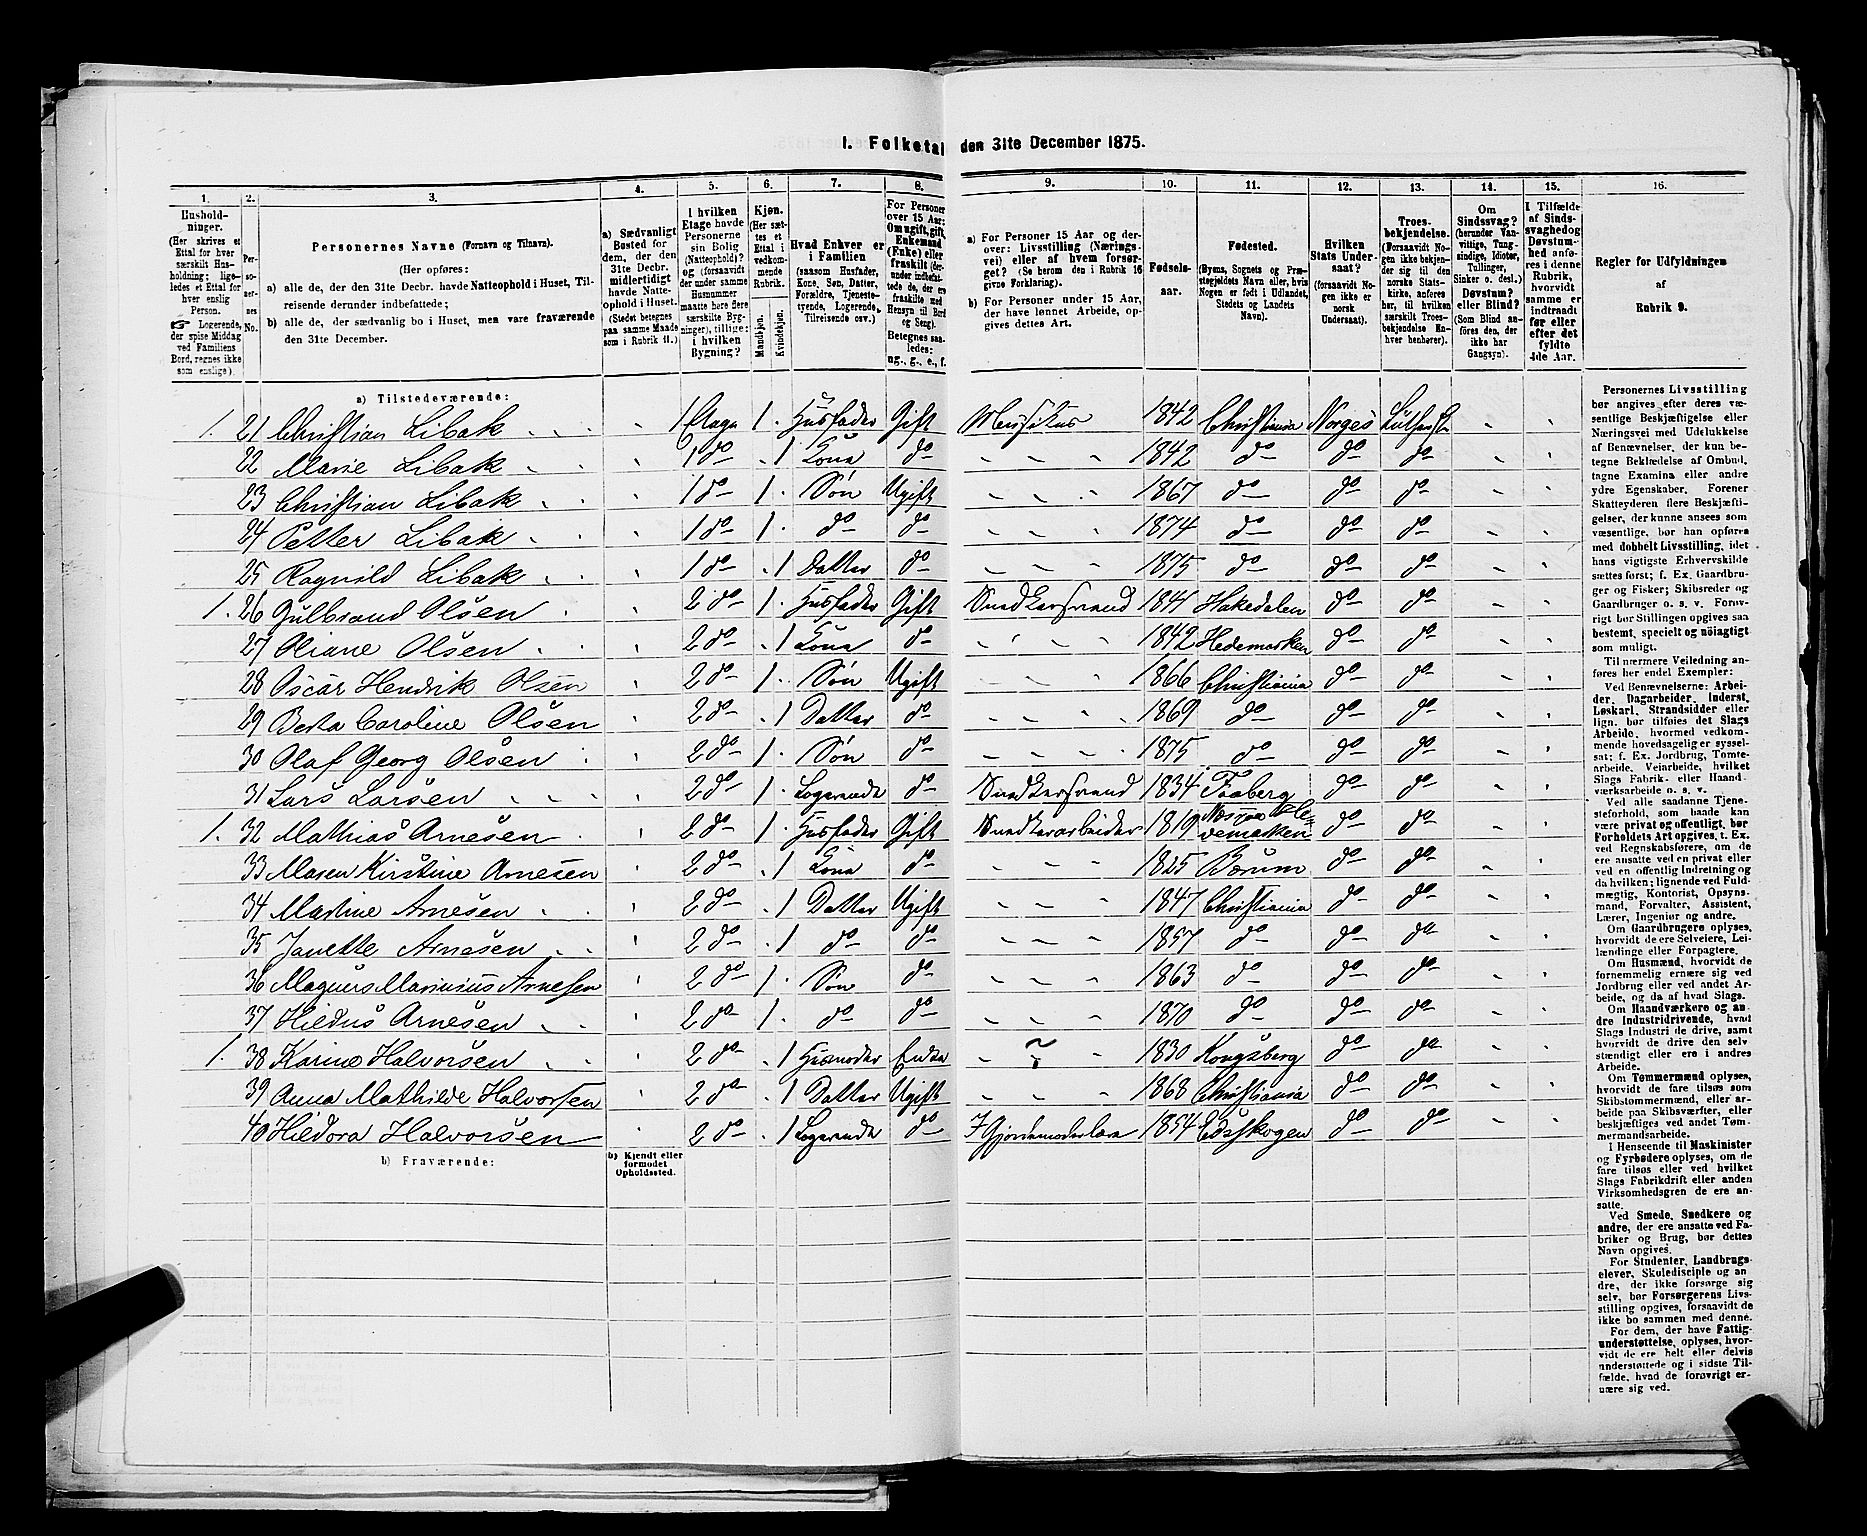 1. Folketal den 31te December 1875.
1. 2. 3. 4. 5. 6. 7. 8. 9. 10. 11. 12. 13. 14. 15. 16.
Husholdninger.
(Her skrives et
Ettal for hver
særskilt Husholdning;
ligeledes et Ettal for
hver enslig
Person.
☞ Logerende,
der spise Middag
ved Familiens
Bord, regnes ikke
som enslige).
Personernes No.
Personernes Navne (Fornavn og Tilnavn).
(Her opføres:
a) alle de, der den 31te Decbr. havde Natteophold i Huset, Tilreisende derunder indbefattede;
b) alle de, der sædvanlig bo i Huset, men vare fraværende
den 31te December.
a) Sædvanligt
Bosted for
dem, der den
31te Decbr.
midlertidigt
havde Natteophold i Huset.
(Stedet betegnes
paa samme Maade
som i Rubrik 11.)
I hvilken
Etage havde
Personerne
sin Bolig
(Natteophold)?
og (forsaavidt
der under samme
Husnummer
maatte høre flere
særskilte Bygninger), tillige:
i hvilken
Bygning?
Kjøn.
(Her sættes et
Ettal i
vedkommende
Rubrik.
Mandkjøn.
Kvindekjøn.
Hvad Enhver er
i Familien
(saasom Husfader,
Kone, Søn, Datter,
Forældre, Tjenestetyende, Logerende,
Tilreisende osv.)
For Personer
over 15 Aar:
Om ugift, gift,
Enkemand
(Enke) eller
fraskilt (derunder indbefattede de, der ere
fraskilte med
Hensyn til Bord
og Seng).
Betegnes saaledes:
ug., g., e., f.
a) For Personer 15 Aar og derover: Livsstilling (Næringsvei) eller af hvem forsørget? (Se herom den i Rubrik 16
givne Forklaring).
b) For Personer under 15 Aar,
der have lønnet Arbeide, opgives dettes Art.
Fødselsaar.
Fødested.
(Byens, Sognets og Præstegjeldets Navn eller, hvis
Nogen er født i Udlandet,
Stedets og Landets
Navn).
Hvilken
Stats Undersaat?
(forsaavidt
Nogen ikke er
norsk
Undersaat).
Troesbekjendelse.
(Forsaavidt Nogen ikke bekjender sig til den
norske Statskirke, anføres
her, til hvilken
særskilt Troesbekjendelse Enhver henhører).
Om
Sindssvag?
(herunder Vanvittige, Tungsindige, Idioter,
Tullinger,
Sinker o. desl.)
Døvstum?
eller Blind?
(Som Blind anføres den, der
ikke har
Gangsyn).
I Tilfælde
af Sindssvaghed og
Døvstumhed anføres i denne
Rubrik,
hvorvidt
samme er
indtraadt
før eller
efter det
fyldte
4de Aar.
Regler for Udfyldningen
af
Rubrik 9.
a) Tilstedeværende:
1. 21 Christian Libak 1 Etage 1 Husfader Gift Musikus 1842 Christiania Norges Luthersk
22 Marie Libak 1 do 1 Kona do 1842 do do do
23 Christian Libak 1 do 1 Søn Ugift 1867 do do do
24 Petter Libak 1 do 1 do do 1874 do do do
25 Ragnild Libak 1 do 1 Datter do 1875 do do do
1. 26 Gulbrand Olsen 2 do 1 Husfader Gift Snedkersvend 1841 Hakedalen do do
27 Oliane Olsen 2 do 1 Kona do 1842 Hedemarken do do
28 Oscar Hendrik Olsen 2 do 1 Søn Ugift 1866 Christiania do do
29 Berta Caroline Olsen 2 do 1 Datter do 1869 do do do
30 Olaf Georg Olsen 2 do 1 Søn do 1875 do do do
31 Lars Larsen 2 do 1 Logerende do Snedkersvend 1834 Faaberg do do
1. 32 Mathias Arnesen 2 do 1 Husfader Gift Snedkerarbeider 1819 Hedemarken do do
33 Maren Kirstine Arnesen 2 do 1 Kona do 1825 Bærum do do
34 Martine Arnesen 2 do 1 Datter Ugift 1847 Christiania do do
35 Janette Arnesen 2 do 1 do do 1857 do do do
36 Magnus Marinius Arnesen 2 do 1 Søn do 1863 do do do
37 Hildus Arnesen 2 do 1 do do 1870 do do do
1. 38 Karine Halvorsen 2 do 1 Husmoder Enke ? 1830 Kongsberg do do
39 Anna Mathilde Halvorsen 2 do 1 Datter Ugift 1868 Christiania do do
40 Hildora Halvorsen 2 do 1 Logerende do I Gjordemoderlære 1854 Edsskogen do do
b) Fraværende:
b) Kjendt eller
formodet
Opholdssted.
Personernes Livsstilling
bør angives efter deres væsentlige Beskjæftigelse eller
Næringsvei med Udelukkelse
af Benævnelser, der kun betegne Beklædelse af Ombud,
tagne Examina eller andre
ydre Egenskaber. Forener
Skatteyderen flere Beskjæftigelser, der kunne ansees som
væsentlige, bør han opføres
med dobbelt Livsstilling, idet
hans vigtigste Erhvervskilde
sættes først; f. Ex. Gaardbruger og Fisker; Skibsreder og
Gaardbruger o. s. v. Forøvrigt bør Stillingen opgives saa
bestemt, specielt og nøiagtigt
som muligt.
Til nærmere Veiledning anføres her endel Exempler:
Ved Benævnelserne: Arbeider, Dagarbeider, Inderst,
Løskarl, Strandsidder eller
lign. bør tilføies det Slags
Arbeide, hvormed vedkommende hovedsagelig er sysselsat; f. Ex. Jordbrug, Tomtearbeide, Veiarbeide, hvilket
Slags Fabrik- eller Haandværksarbeide o. s. v.
Ved alle saadanne Tjenesteforhold, som baade kan
være privat og offentligt, bør
Forholdets Art opgives, t. Ex.
ved Regnskabsførere, om de
ere ansatte ved en privat eller
ved en offentlig Indretning og
da hvilken; lignende ved Fuldmægtig, Kontorist, Opsynsmand, Forvalter, Assistent,
Lærer, Ingeniør og andre.
Om Gaardbrugere oplyses,
hvorvidt de ere Selveiere, Leilændinge eller Forpagtere.
Om Husmænd, hvorvidt de
fornemmelig ernære sig ved
Jordbrug eller ved andet Arbeide, og da af hvad Slags.
Om Haandværkere og andre Industridrivende, hvad
Slags Industri de drive, samt
hvorvidt de drive den selvstændigt eller ere i andres
Arbeide.
Om Tømmermænd oplyses,
hvorvidt de fare tilsøs som
Skibstømmermænd, eller arbeide paa Skibsværfter, eller
beskjæftiges ved andet Tømmermandsarbeide.
I Henseende til Maskinister
og Fyrbødere oplyses, om de
fare tilsøs eller ved hvilket
Slags Fabrikdrift eller anden
Virksomhedsgren de ere ansatte.
Ved Smede, Snedkere og
andre, der ere ansatte ved Fabriker og Brug, bør dettes
Navn opgives.
For Studenter, Landbrugselever, Skoledisciple og andre, der ikke forsørge sig
selv, bør Forsørgerens Livsstilling opgives, forsaavidt de
ikke bo sammen med denne.
For dem, der have Fattigunderstøttelse, oplyses, hvorvidt de ere helt eller delvis
understøttede og i sidste Tilfælde, hvad de forøvrigt ernære sig ved.